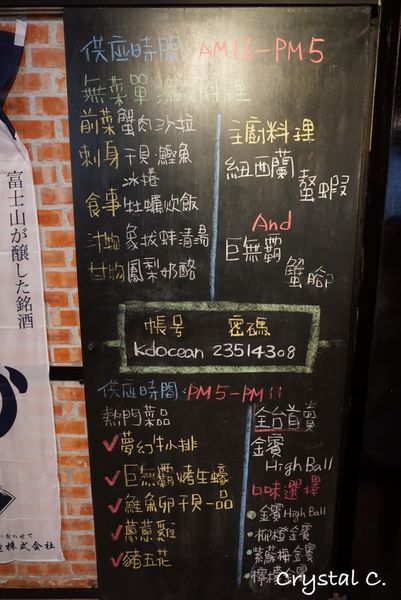 供应時間: AM12-PM5
無菜單海鮮料理
前菜 蟹肉沙拉
刺身 干貝.鰹魚
冰捲
食事 牡蠣炊飯
汁物 象拔蚌清湯
甘物 鳳梨奶酪
主廚料理
紐西蘭
螯蝦
And
巨無霸
蟹腳
帳号 密碼
kdocean 23514308
供应時間: PM5-PM11
熱門菜品
夢幻牛小排
巨無霸烤生蠔
鮭魚卵干貝一品
蔥蔥雞
豬五花
全台首賣
金賓
High Ball
口味選擇
金賓 High Ball
柳橙金賓
紫蘇梅金賓
檸檬金賓
富士山が醸した銘酒
株式会社
Crystal C.